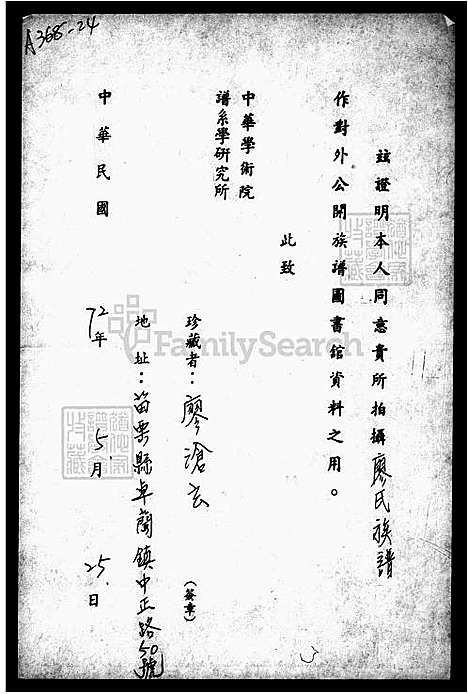 A368-24
茲證明本人同意貴所拍攝廖氏族譜
作對外公開族譜圖書館資料之用。
此致
中華學術院
譜系學研究所
珍藏者：廖滄玄
(簽章)
地址：苗栗縣卓蘭鎮中正路50號
中華民國 72年 5月 25日
FamilySearch